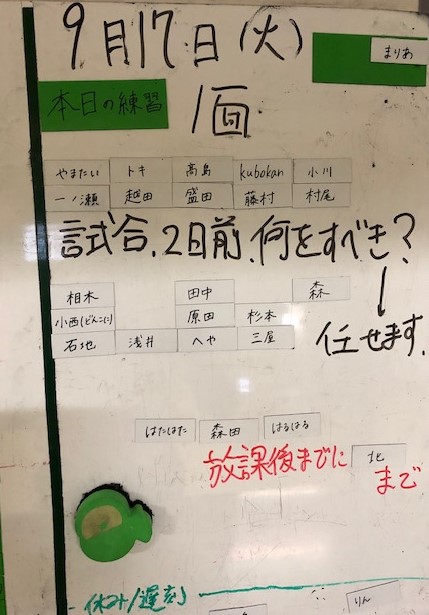 9月17日(火)
まりあ
本日の練習
1面
やまたい トキ 高島 kubokan 小川
一ノ瀬 越田 盛田 藤村 村尾
試合、2日前、何をすべき?
相木 田中 森
小西(どんこに) 原田 杉本
石地 浅井 へや 三屋
任せます。
はたはた 森田 はるはる
放課後までに 北
まで
休み/遅刻
りん